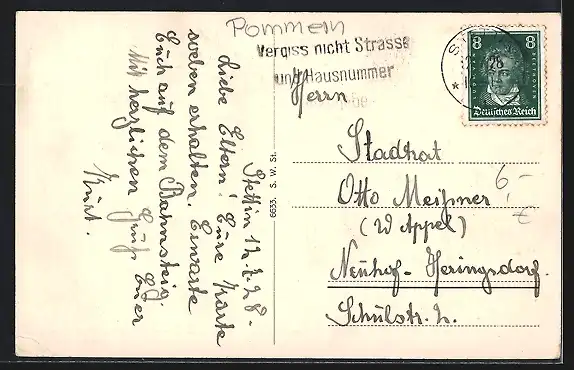 Pommern
Vergiss nicht Strasse
und Hausnummer
8 8
Deutsches Reich
Stettin 12.7.28.
Liebe Eltern! Eure Karte
soeben erhalten. Erwarte
Euch auf dem Bahnsteig.
Mit herzlichen Gruß Euer
Kurt.
6633. S. W. St.
Herrn
Stadtrat
Otto Meißner
(W Appel)
Neuhof-Heringsdorf.
Schulstr. 2.
6-
€